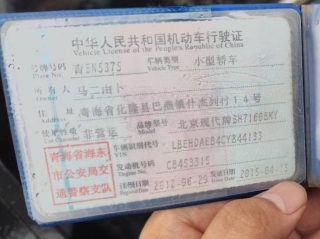 中华人民共和国机动车行驶证
Vehicle License of the People's Republic of China
号牌号码 青BN5375 车辆类型 小型轿车
Plate No. Vehicle Type
所有人 马二南卜
Owner
住址 青海省化隆县巴燕镇什杰列村14号
使用性质 非营运 品牌型号 北京现代牌BH7160BKY
Model
青海省海东
市公安局交
通警察支队
车辆识别代号 LBEHDAEB4CY844133
VIN
发动机号码 CB453315
Engine No.
注册日期 2012-06-29 发证日期 2015-04-
Register Date Issue Date